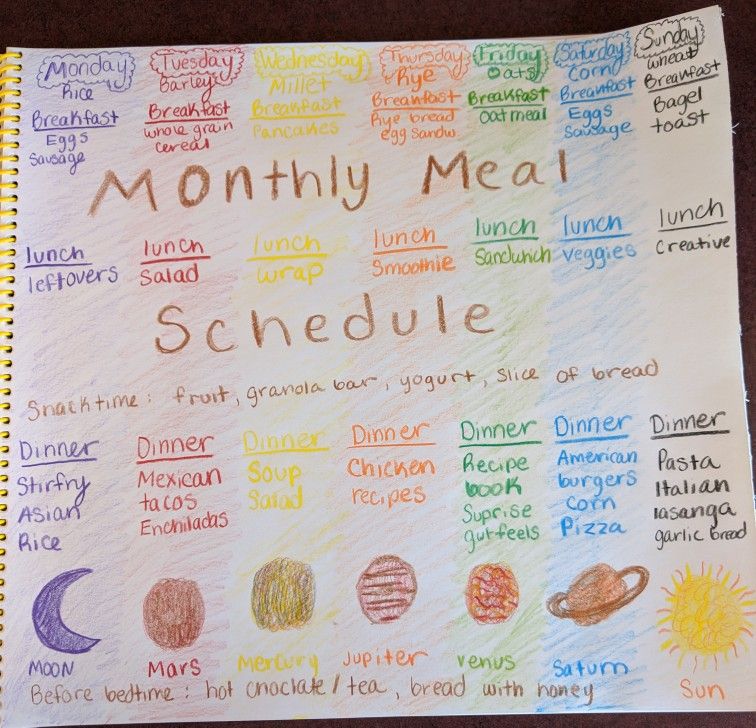 Monday Tuesday Wednesday Thursday Friday Saturday Sunday
Rice Barley Millet Rye oats Corn wheat
Breakfast Breakfast Breakfast Breakfast Breakfast Breakfast Breakfast
Eggs whole grain Pancakes Rye bread oatmeal Eggs Bagel
Sausage cereal egg sandw. Sausage toast
Monthly Meal
lunch lunch lunch lunch lunch lunch lunch
leftovers Salad wrap Smoothie Sandwhich veggies Creative
Schedule
Snacktime: fruit, granola bar, yogurt, slice of bread
Dinner Dinner Dinner Dinner Dinner Dinner Dinner
Stirfry Mexican Soup Chicken Recipe American Pasta
Asian tacos Salad recipes book burgers Italian
Rice Enchiladas Suprise corn lasanga
gutfeels Pizza garlic bread
MOON Mars Mercury Jupiter venus Saturn Sun
Before bedtime: hot choclate/tea, bread with honey